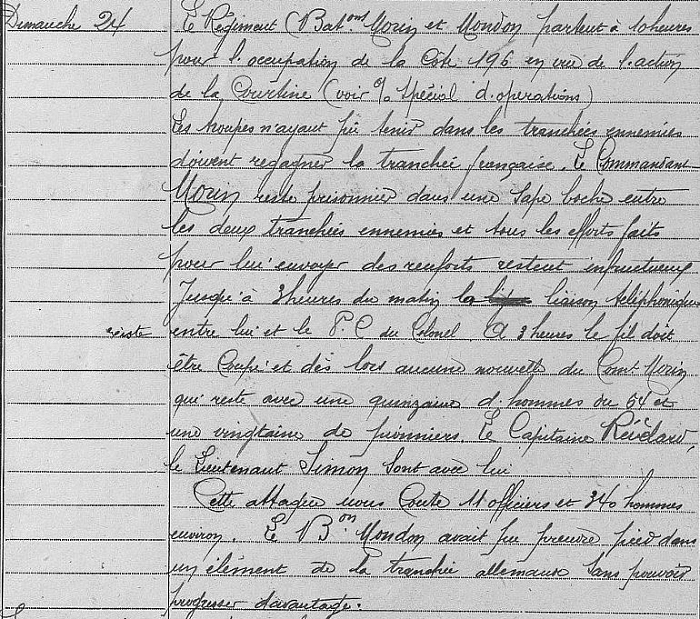 Dimanche 24 Le Régiment (Bat.ons Morin et Mondon partent à 10 heures
pour l'occupation de la Côte 196 en vue de l'action
de la Courtine (voir % spécial d'opérations)
Les troupes n'ayant pû tenir dans les tranchées ennemies
doivent regagner la tranchée française. Le Commandant
Morin reste prisonnier dans une sape boche entre
les deux tranchées ennemies et tous les efforts faits
pour lui envoyer des renforts restent infructueux
Jusqu'à 3 heures du matin la liaison téléphonique
existe entre lui et le P.C du Colonel. A 3 heures le fil doit
être coupé et dès lors aucune nouvelle du Comt Morin
qui reste avec une quinzaine d'hommes du 64 et
une vingtaine de pionniers. Le Capitaine Révélard,
le Lieutenant Simon sont avec lui
Cette attaque nous coute 11 officiers et 340 hommes
environ. Le B.on Mondon avait pu prendre pied dans
un élément de la tranchée allemande sans pouvoir
progresser davantage.